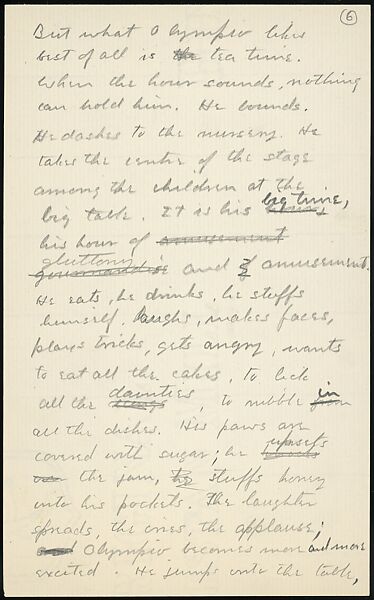 6
But what Olympio likes
best of all is the tea time.
When the hour sounds, nothing
can hold him. He bounds.
He dashes to the nursery. He
takes the centre of the stage
among the children at the
big table. It is his big time,
his hour of amusement
gluttony
gourmandise and of amusement.
He eats, he drinks, he stuffs
himself, laughs, makes faces,
plays tricks, gets angry, wants
to eat all the cakes, to lick
all the dainties, to nibble in from
all the dishes. His paws are
covered with sugar; he upsets
over the jam, he stuffs honey
into his pockets. The laughter
spreads, the cries, the applause;
Olympio becomes more and more
excited. He jumps onto the table,